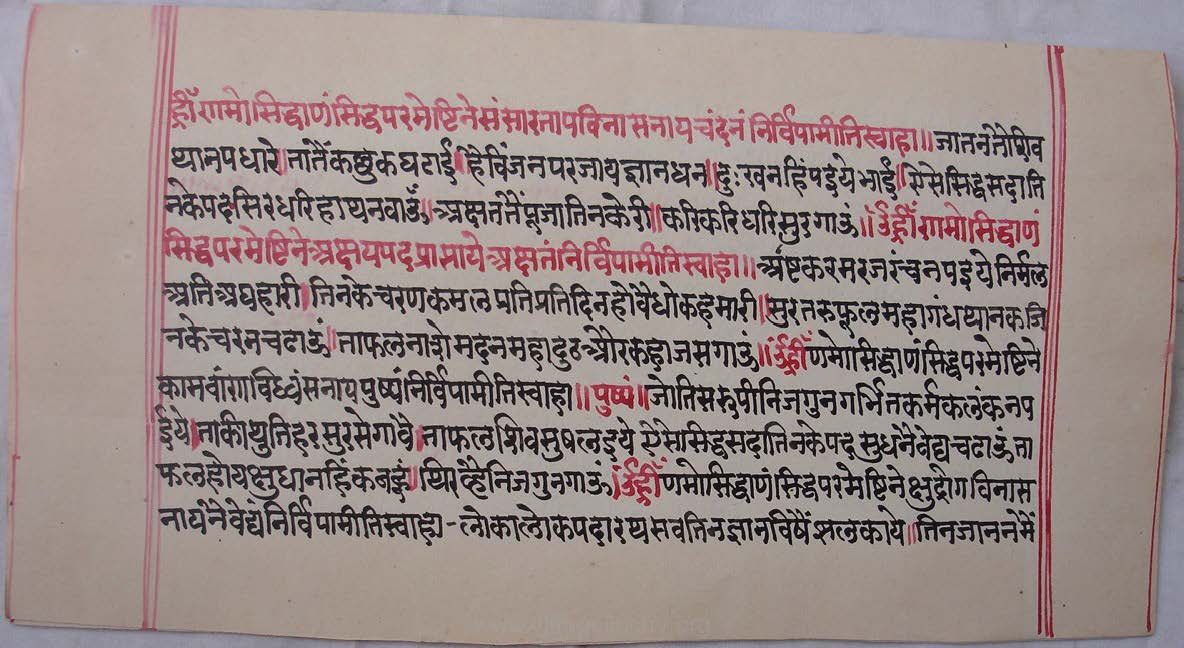 ह्रीँ णमो सिद्धाणं सिद्धपरमेष्टिने संसारतापविनासनाय चंदनं निर्विपामीतिस्वाहा॥ जातनतेशिव
थानपधारे। नातैंकछुकघटाई। हैविंजनपरजायज्ञानधन। दुःखनहिंपइयेभाई। ऐसेसिद्धसदाति
नकेपदसिरधरिहाथनवाऊँ॥ अक्षतनैंपूजातिनकेरी। करिकरिधरिसुरगाऊं॥ ॐह्रीँ णमो सिद्धाणं
सिद्धपरमेष्टिने अक्षयपदप्राप्ताये अक्षतं निर्विपामीतिस्वाहा॥ अष्टकरमरजरंचनपइयेनिर्मल
अतिअघहारी। तिनकेचरणकमलप्रतिप्रतिदिनहोवैधोकहमारी। सुरतरुफूलमहागंधथानकजि
नकेचरनचढाऊं। ताफलनाशेमदनमहादुठऔरकहाजसगाऊं॥ ॐह्रीँ णमोसिद्धाणंसिद्धपरमेष्टिने
कामवांणविध्वंसनायपुष्पंनिर्विपामीतिस्वाहा॥ पुष्पं॥ जोतिसरूपीनिजगुनगर्भितकर्मकलंकनप
ईये। ताकीथुतिहरसुरसेगावै। ताफलशिवसुषलइये ऐसेसिद्धसदातिनकेपदसुधनैवेद्यचढाऊंता
फलहोयक्षुधानहिंकबहूं। थिरव्हैनिजगुनगाऊं। ॐह्रीँ णमोसिद्धाणंसिद्धपरमेष्टिनेक्षुद्रोगविनास
नायनैवेद्यंनिर्विपामीतिस्वाहा - लोकालोकपदारथसवतिनज्ञानविषैंझलकाये॥ तिनजाननेमें